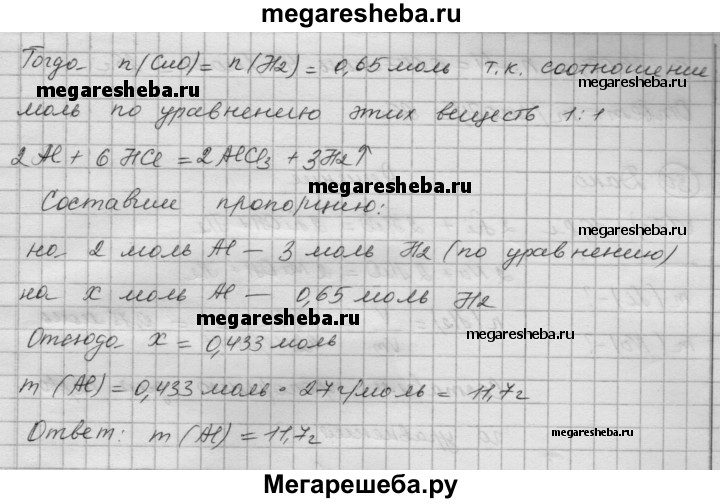 megaresheba.ru
Тогда n(CuO) = n(H2) = 0,65 моль т.к. соотношение
megaresheba.ru
megaresheba.ru
моль по уравнению этих веществ 1:1
2Al + 6HCl = 2AlCl3 + 3H2↑
megaresheba.ru
Составим пропорцию:
на 2 моль Al — 3 моль H2 (по уравнению)
на x моль Al — 0,65 моль H2
megaresheba.ru
Отсюда x = 0,433 моль
megaresheba.ru
m(Al) = 0,433 моль · 27г/моль = 11,7г
Ответ: m(Al) = 11,7г
megaresheba.ru
Мегарешеба.ру